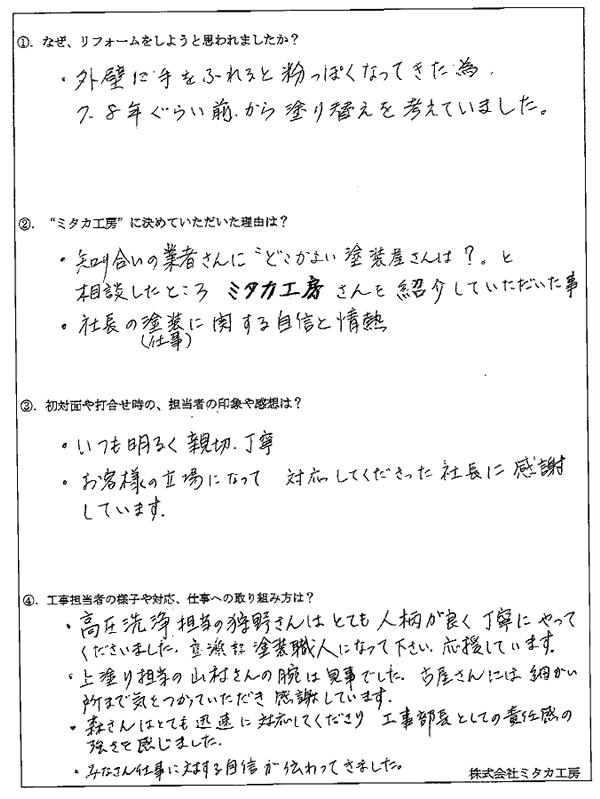 ①．なぜ、リフォームをしようと思われましたか？
・外壁に手をふれると粉っぽくなってきた為、
7、8年ぐらい前から塗り替えを考えていました。
②．“ミタカ工房”に決めていただいた理由は？
・知り合いの業者さんに“どこかよい塗装屋さんは？”と
相談したところ ミタカ工房 さんを紹介していただいた事
・社長の塗装に関する自信と情熱
(仕事)
③．初対面や打合せ時の、担当者の印象や感想は？
・いつも明るく親切、丁寧
・お客様の立場になって 対応してくださった社長に感謝
しています。
④．工事担当者の様子や対応、仕事への取り組み方は？
・高圧洗浄担当の狩野さんはとても人柄が良く丁寧にやって
くださいました。立派な塗装職人になって下さい。応援しています。
・上塗り担当の山村さんの腕は見事でした。古屋さんには細かい
所まで気をつかっていただき感謝しています。
・森さんはとても迅速に対応してくださり 工事部長としての責任感の
強さを感じました。
・みなさん仕事に対する自信が伝わってきました。
株式会社ミタカ工房